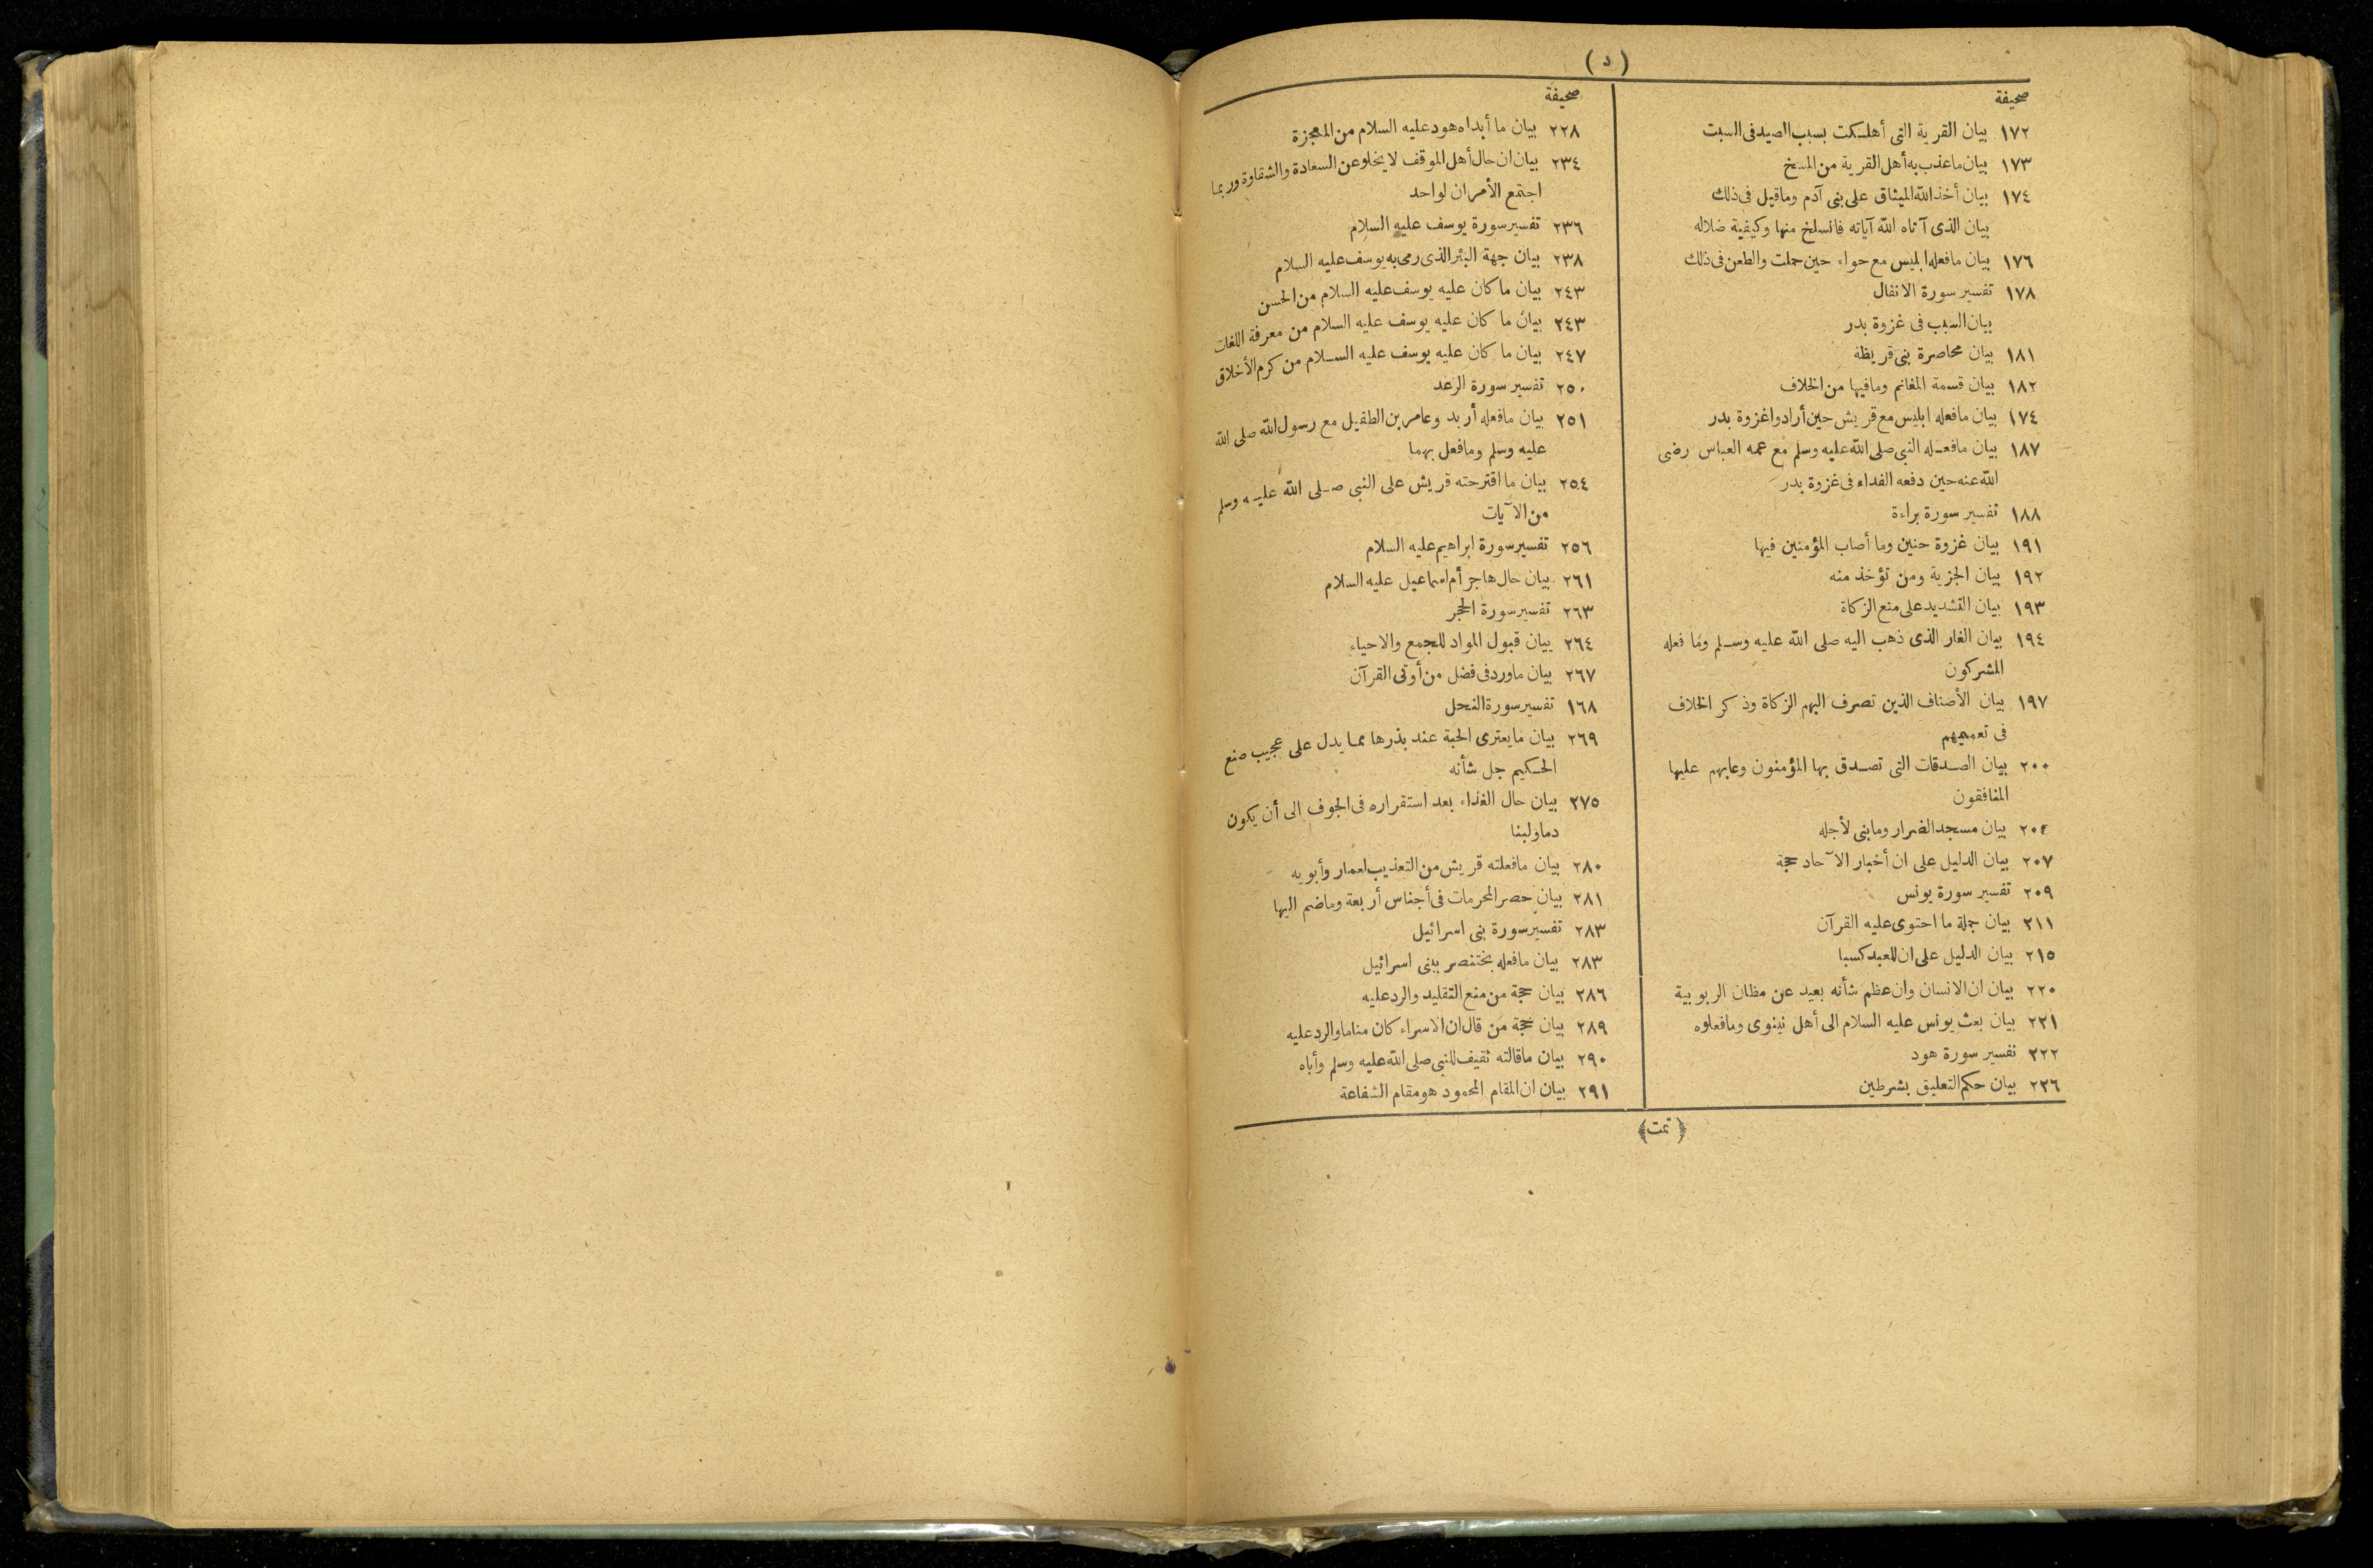 (د)
صحيفة
١٧٢ بيان القرية التى أهلكت بسبب الصيد فى السبت
١٧٣ بيان ماعذب به أهل القرية من المسخ
١٧٤ بيان أخذ الله الميثاق على بنى آدم وماقيل فى ذلك
بيان الذى آتاه الله آياته فانسلخ منها وكيفية ضلاله
١٧٦ بيان مافعله ابليس مع حواء حين حملت والطعن فى ذلك
١٧٨ تفسير سورة الانفال
بيان السبب فى غزوة بدر
١٨١ بيان محاصرة بنى قريظة
١٨٢ بيان قسمة المغانم ومافيها من الخلاف
١٧٤ بيان مافعله ابليس مع قريش حين أرادوا غزوة بدر
١٨٧ بيان مافعله النبى صلى الله عليه وسلم مع عمه العباس رضى
الله عنه حين دفعه الفداء فى غزوة بدر
١٨٨ تفسير سورة براءة
١٩١ بيان غزوة حنين وما أصاب المؤمنين فيها
١٩٢ بيان الجزية ومن تؤخذ منه
١٩٣ بيان التشديد على منع الزكاة
١٩٤ بيان الغار الذى ذهب اليه صلى الله عليه وسلم وما فعله
المشركون
١٩٧ بيان الأصناف الذين تصرف اليهم الزكاة وذكر الخلاف
فى تعميمهم
٢٠٠ بيان الصدقات التى تصدق بها المؤمنون وعابهم عليها
المنافقون
٢٠٤ بيان مسجد الضرار ومابنى لأجله
٢٠٧ بيان الدليل على ان أخبار الآحاد حجة
٢٠٩ تفسير سورة يونس
٢١١ بيان جملة ما احتوى عليه القرآن
٢١٥ بيان الدليل على ان للعبد كسبا
٢٢٠ بيان ان الانسان وان عظم شأنه بعيد عن مظان الربوبية
٢٢١ بيان بعث يونس عليه السلام الى أهل نينوى ومافعلوه
٢٢٢ تفسير سورة هود
٢٢٦ بيان حكم التعليق بشرطين
صحيفة
٢٢٨ بيان ما أبداه هود عليه السلام من المعجزة
٢٣٤ بيان ان حال أهل الموقف لا يخلو عن السعادة والشقاوة وربما
اجتمع الأمران لواحد
٢٣٦ تفسير سورة يوسف عليه السلام
٢٣٨ بيان جهة البئر الذى رمى به يوسف عليه السلام
٢٤٣ بيان ما كان عليه يوسف عليه السلام من الحسن
٢٤٣ بيان ما كان عليه يوسف عليه السلام من معرفة اللغات
٢٤٧ بيان ما كان عليه يوسف عليه السلام من كرم الأخلاق
٢٥٠ تفسير سورة الرعد
٢٥١ بيان مافعله أربد وعامر بن الطفيل مع رسول الله صلى الله
عليه وسلم ومافعل بهما
٢٥٤ بيان ما اقترحته قريش على النبى صلى الله عليه وسلم
من الآيات
٢٥٦ تفسير سورة ابراهيم عليه السلام
٢٦١ بيان حال هاجر أم اسماعيل عليه السلام
٢٦٣ تفسير سورة الحجر
٢٦٤ بيان قبول المواد للجمع والاحياء
٢٦٧ بيان ماورد فى فضل من أوتى القرآن
١٦٨ تفسير سورة النحل
٢٦٩ بيان مايعترى الحبة عند بذرها مما يدل على عجيب صنع
الحكيم جل شأنه
٢٧٥ بيان حال الغذاء بعد استقراره فى الجوف الى أن يكون
دما ولبنا
٢٨٠ بيان مافعلته قريش من التعذيب لعمار وأبويه
٢٨١ بيان حصر المحرمات فى أجناس أربعة وماضم اليها
٢٨٣ تفسير سورة بنى اسرائيل
٢٨٣ بيان مافعله بختنصر ببنى اسرائيل
٢٨٦ بيان حجة من منع التقليد والرد عليه
٢٨٩ بيان حجة من قال ان الاسراء كان مناما والرد عليه
٢٩٠ بيان ماقالته ثقيف للنبى صلى الله عليه وسلم وأباه
٢٩١ بيان ان المقام المحمود هو مقام الشفاعة
﴿تمت﴾